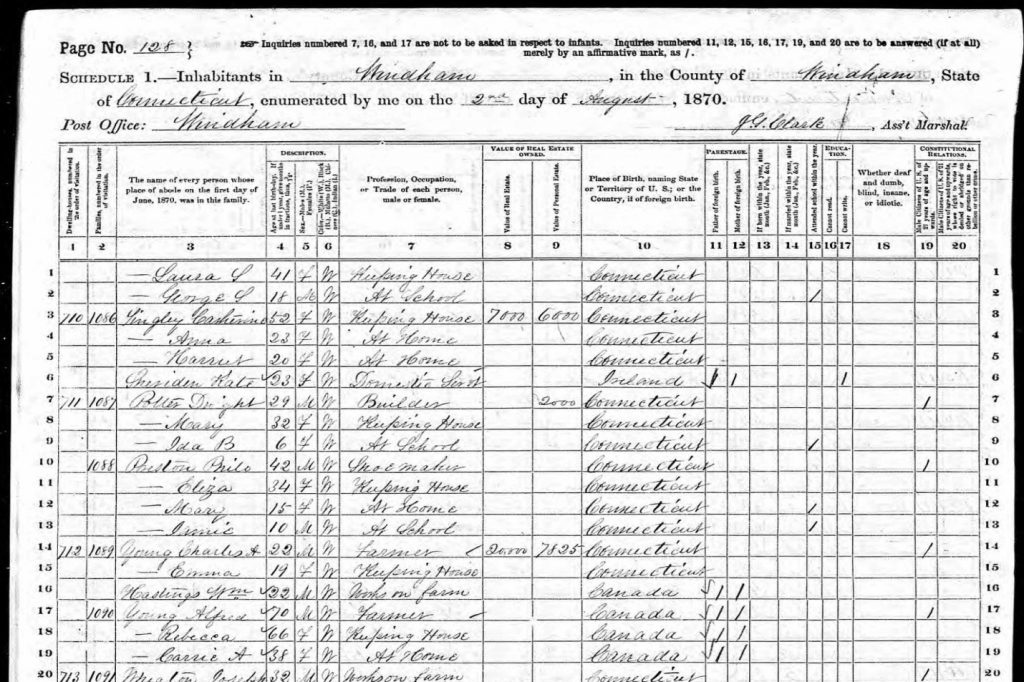 Page No. 128 }
☞ Inquiries numbered 7, 16, and 17 are not to be asked in respect to infants. Inquiries numbered 11, 12, 15, 16, 17, 19, and 20 are to be answered (if at all)
merely by an affirmative mark, as /.
SCHEDULE 1.—Inhabitants in Windham, in the County of Windham, State
of Connecticut, enumerated by me on the 2nd day of August, 1870.
Post Office: Windham J.G. Clark, Ass't Marshal.
DESCRIPTION. VALUE OF REAL ESTATE OWNED. PARENTAGE. EDUCATION. CONSTITUTIONAL RELATIONS.
Dwelling-houses, numbered in the order of visitation. Families, numbered in the order of visitation. The name of every person whose place of abode on the first day of June, 1870, was in this family. Age at last birth-day. If under 1 year, give months in fractions, thus, Sex.—Males (M.), Females (F.) Profession, Occupation, or Trade of each person, male or female. Value of Real Estate. Value of Personal Estate. Place of Birth, naming State or Territory of U. S.; or the Country, if of foreign birth. Father of foreign birth. Mother of foreign birth. If born within the year, state month (Jan., Feb., &c.) If married within the year, state month (Jan., Feb., &c.) Attended school within the year. Cannot read. Cannot write. Whether deaf and dumb, blind, insane, or idiotic. Male Citizens of U. S. of 21 years of age and upwards.
1 2 3 4 5 6 7 8 9 10 11 12 13 14 15 16 17 18 19 20
1 — Laura S 41 F W Keeping House Connecticut 1
2 — George S 18 M W At School Connecticut / 2
3 710 1086 Lingley Catherine 52 F W Keeping House 7000 6000 Connecticut 3
4 — Anna 23 F W At Home Connecticut 4
5 — Harriet 20 F W At Home Connecticut 5
6 Sheriden Kate 23 F W Domestic Servt Ireland / / / 6
7 711 1087 Potter Dwight 29 M W Builder 2000 Connecticut / 7
8 — Mary 32 F W Keeping House Connecticut 8
9 — Ida B 6 F W At School Connecticut / 9
10 1088 Preston Philo 42 M W Shoemaker Connecticut / 10
11 — Eliza 34 F W Keeping House Connecticut 11
12 — Mary 15 F W At Home Connecticut / 12
13 — 10 M W At School Connecticut / 13
14 712 1089 Young Charles A 22 M W Farmer 20.000 7825 Connecticut / 14
15 — Emma 19 F W Keeping House Connecticut 15
16 Hastings Wm 22 M W Works on farm Canada / / 16
17 1090 Young Alfred 70 M W Farmer Canada / / / 17
18 — Rebecca 66 F W Keeping House Canada / / 18
19 — Carrie A 38 F W At Home Canada / / 19
20 713 1091 Wheaton Joseph 32 M W Works on farm Connecticut / 20